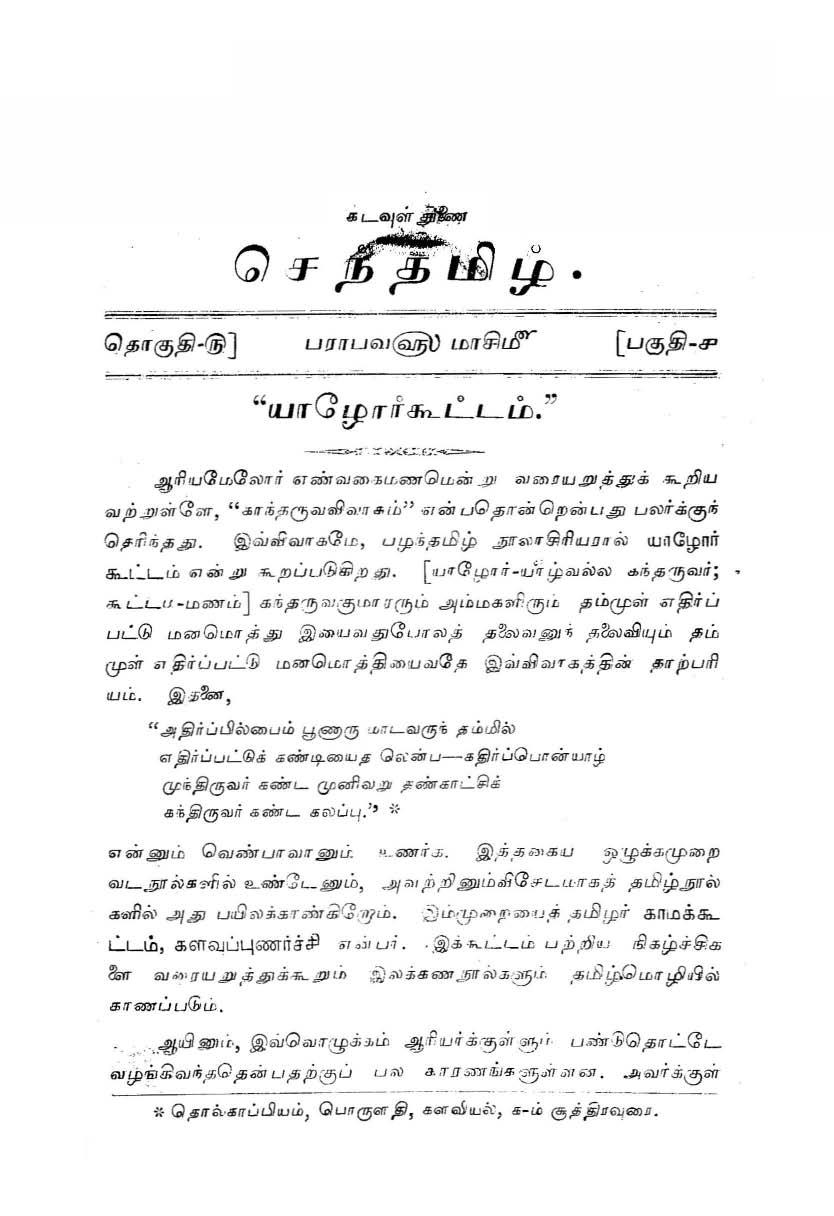 கடவுள் துணை
செந்தமிழ்.
தொகுதி-ரு] பராபவ௵ மாசிமீ [பகுதி-ச
“யாழோர்கூட்டம்.”
ஆரியமேலோர் எண்வகைமணமென்று வரையறுத்துக் கூறிய
வற்றுள்ளே, “காந்தருவவிவாகம்” என்பதொன்றென்பது பலர்க்குந்
தெரிந்தது. இவ்விவாகமே, பழந்தமிழ் நூலாசிரியரால் யாழோர்
கூட்டம் என்று கூறப்படுகிறது. [யாழோர்-யாழ்வல்ல கந்தருவர்;
கூட்டம்-மணம்] கந்தருவகுமாரரும் அம்மகளிரும் தம்முள் எதிர்ப்
பட்டு மனமொத்து இயைவதுபோலத் தலைவனுந் தலைவியும் தம்
முள் எதிர்ப்பட்டு மனமொத்தியைவதே இவ்விவாகத்தின் தாற்பரி
யம். இதனை,
“அதிர்ப்பில்பைம் பூணாரு மாடவருந் தம்மில்
எதிர்ப்பட்டுக் கண்டியைத லென்ப—கதிர்ப்பொன்யாழ்
முந்திருவர் கண்ட முனிவறு தண்காட்சிக்
கந்திருவர் கண்ட கலப்பு.” *
என்னும் வெண்பாவானும் உணர்க. இத்தகைய ஒழுக்கமுறை
வடநூல்களில் உண்டேனும், அவற்றினும்விசேடமாகத் தமிழ்நூல்
களில் அது பயிலக்காண்கிறோம். இம்முறையைத் தமிழர் காமக்கூ
ட்டம், களவுப்புணர்ச்சி என்பர். இக்கூட்டம் பற்றிய நிகழ்ச்சிக
ளை வரையறுத்துக்கூறும் இலக்கணநூல்களும் தமிழ்மொழியில்
காணப்படும்.
ஆயினும், இவ்வொழுக்கம் ஆரியர்க்குள்ளும் பண்டுதொட்டே
வழங்கிவந்ததென்பதற்குப் பல காரணங்களுள்ளன. அவர்க்குள்
* தொல்காப்பியம், பொருளதி, களவியல், க-ம் சூத்திரவுரை.